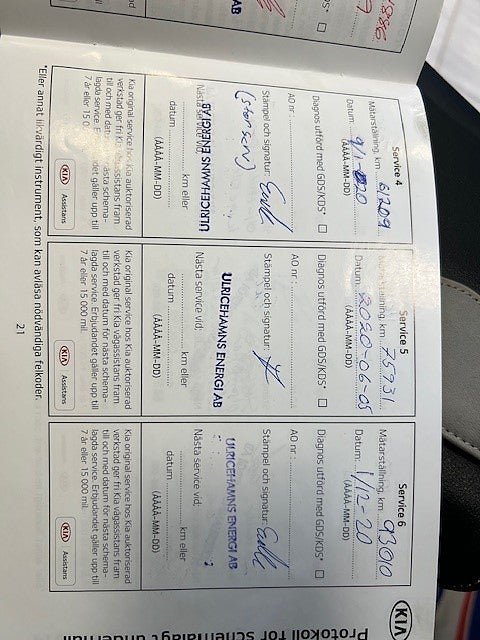 KIA
Protokoll för schemalagt underhåll
Service 4
Mätarställning, km: 61209
Datum: 9/1-2020
(ÅÅÅÅ-MM-DD)
Diagnos utförd med GDS/KDS*
AO nr:
Stämpel och signatur:
ULRICEHAMNS ENERGI AB
Nästa service vid:
km eller
datum
(ÅÅÅÅ-MM-DD)
Kia original service hos Kia auktoriserad
verkstad ger fri Kia vägassistans fram
till och med datum för nästa schema-
lagda service. Erbjudandet gäller upp till
7 år eller 15 0
KIA Assistans
Service 5
Mätarställning, km: 75931
Datum: 2020-06-05
(ÅÅÅÅ-MM-DD)
Diagnos utförd med GDS/KDS*
AO nr:
Stämpel och signatur:
ULRICEHAMNS ENERGI AB
Nästa service vid:
km eller
datum
(ÅÅÅÅ-MM-DD)
Kia original service hos Kia auktoriserad
verkstad ger fri Kia vägassistans fram
till och med datum för nästa schema-
lagda service. Erbjudandet gäller upp till
7 år eller 15 000 mil.
KIA Assistans
Service 6
Mätarställning, km: 93010
Datum: 1/12-20
(ÅÅÅÅ-MM-DD)
Diagnos utförd med GDS/KDS*
AO nr:
Stämpel och signatur:
ULRICEHAMNS ENERGI AB
Nästa service vid:
km eller
datum
(ÅÅÅÅ-MM-DD)
Kia original service hos Kia auktoriserad
verkstad ger fri Kia vägassistans fram
till och med datum för nästa schema-
lagda service. Erbjudandet gäller upp till
7 år eller 15 000 mil.
KIA Assistans
*Eller annat likvärdigt instrument, som kan avläsa nödvändiga felkoder.
21